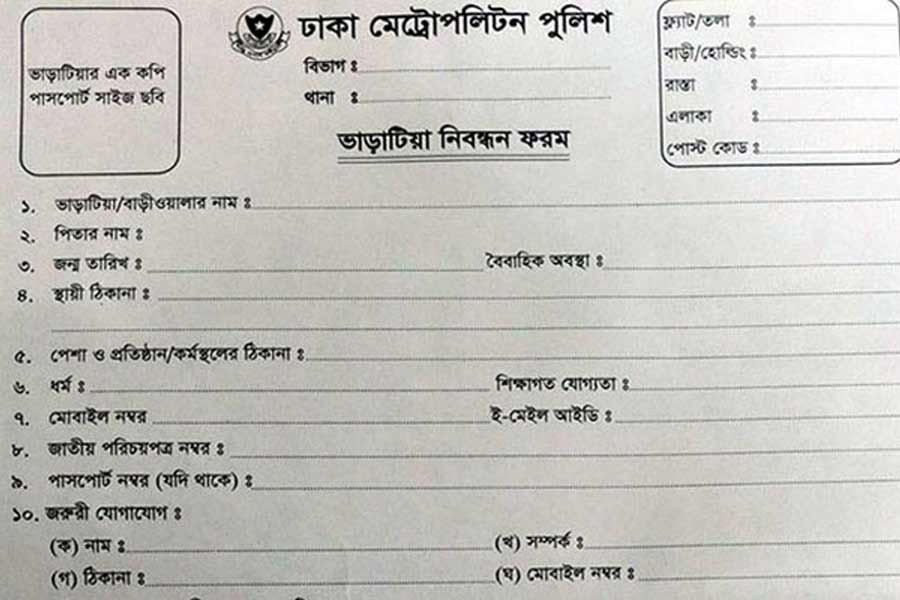 ভাড়াটিয়ার এক কপি
পাসপোর্ট সাইজ ছবি
ঢাকা মেট্রোপলিটন পুলিশ
বিভাগ ঃ
থানা ঃ
ভাড়াটিয়া নিবন্ধন ফরম
ফ্ল্যাট/তলা ঃ
বাড়ী/হোল্ডিং ঃ
রাস্তা ঃ
এলাকা ঃ
পোস্ট কোড ঃ
১. ভাড়াটিয়া/বাড়ীওয়ালার নাম ঃ
২. পিতার নাম ঃ
৩. জন্ম তারিখ ঃ বৈবাহিক অবস্থা ঃ
৪. স্থায়ী ঠিকানা ঃ
৫. পেশা ও প্রতিষ্ঠান/কর্মস্থলের ঠিকানা ঃ
৬. ধর্ম ঃ শিক্ষাগত যোগ্যতা ঃ
৭. মোবাইল নম্বর ই-মেইল আইডি ঃ
৮. জাতীয় পরিচয়পত্র নম্বর ঃ
৯. পাসপোর্ট নম্বর (যদি থাকে) ঃ
১০. জরুরী যোগাযোগ ঃ
(ক) নাম ঃ (খ) সম্পর্ক ঃ
(গ) ঠিকানা ঃ (ঘ) মোবাইল নম্বর ঃ